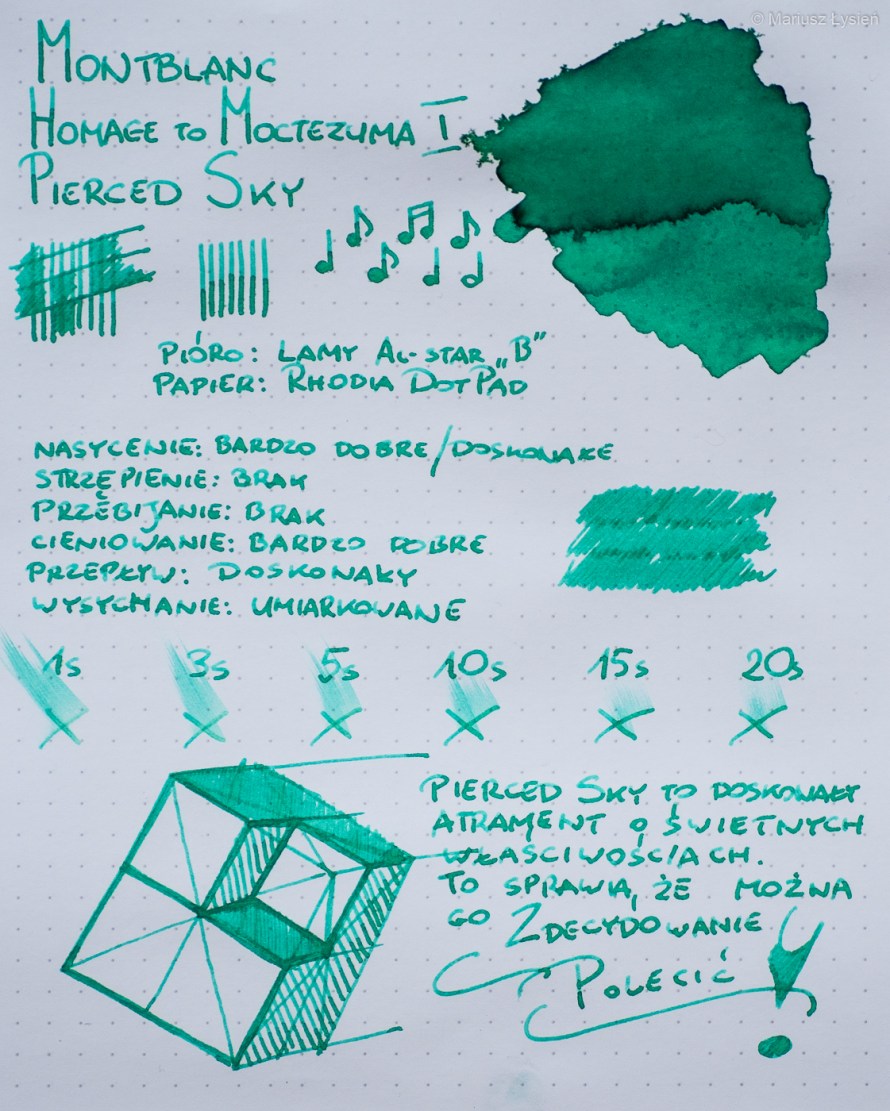 © Mariusz Łysień
MONTBLANC
HOMAGE TO MOCTEZUMA I
PIERCED SKY
PIÓRO: LAMY AL-STAR „B”
PAPIER: RHODIA DOTPAD
NASYCENIE: BARDZO DOBRE/DOSKONAŁE
STRZĘPIENIE: BRAK
PRZEBIJANIE: BRAK
CIENIOWANIE: BARDZO DOBRE
PRZEPŁYW: DOSKONAŁY
WYSYCHANIE: UMIARKOWANE
1s 3s 5s 10s 15s 20s
PIERCED SKY TO DOSKONAŁY
ATRAMENT O ŚWIETNYCH
WŁAŚCIWOŚCIACH.
TO SPRAWIA, ŻE MOŻNA
GO ZDECYDOWANIE
POLECIĆ!